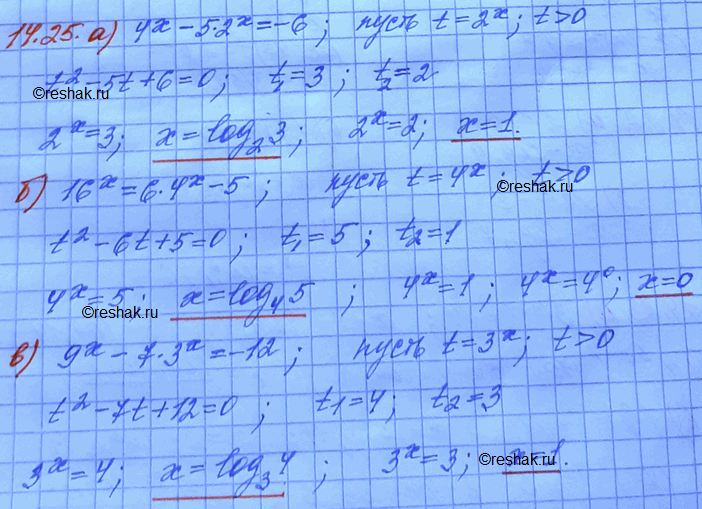 14.25. а) 4ˣ - 5·2ˣ = -6 ; пусть t = 2ˣ ; t > 0
t² - 5t + 6 = 0 ; t₁ = 3 ; t₂ = 2
©reshak.ru
2ˣ = 3 ; x = log₂3 ; 2ˣ = 2 ; x = 1.
б) 16ˣ = 6·4ˣ - 5 ; пусть t = 4ˣ ; t > 0
©reshak.ru
t² - 6t + 5 = 0 ; t₁ = 5 ; t₂ = 1
4ˣ = 5 ; x = log₄5 ; 4ˣ = 1 ; 4ˣ = 4⁰ ; x = 0
©reshak.ru
в) 9ˣ - 7·3ˣ = -12 ; пусть t = 3ˣ ; t > 0
t² - 7t + 12 = 0 ; t₁ = 4 ; t₂ = 3
3ˣ = 4 ; x = log₃4 ; 3ˣ = 3 ; x = 1.
©reshak.ru